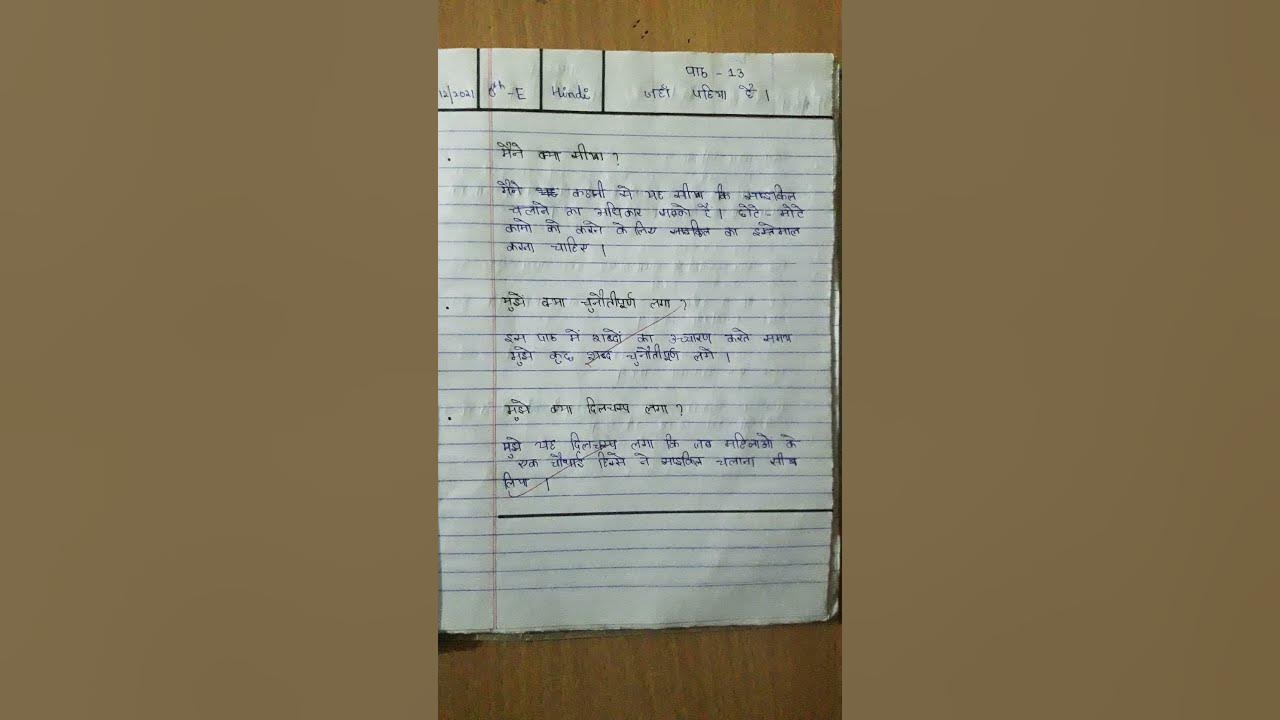 12/2021 8th-E Hindi पाठ - 13
जहाँ पहिया है।
मैंने क्या सीखा ?
मैंने यह कहानी से यह सीखा कि साइकिल
चलाने का अधिकार सबको है। छोटे - मोटे
कामो को करने के लिए साइकिल का इस्तेमाल
करना चाहिए।
मुझे क्या चुनौतीपूर्ण लगा ?
इस पाठ में शब्दों का उच्चारण करते समय
मुझे कुछ शब्द चुनौतीपूर्ण लगे।
मुझे क्या दिलचस्प लगा ?
मुझे यह दिलचस्प लगा कि जब महिलाओ के
एक चौथाई हिस्से ने साइकिल चलाना सीख
लिया।